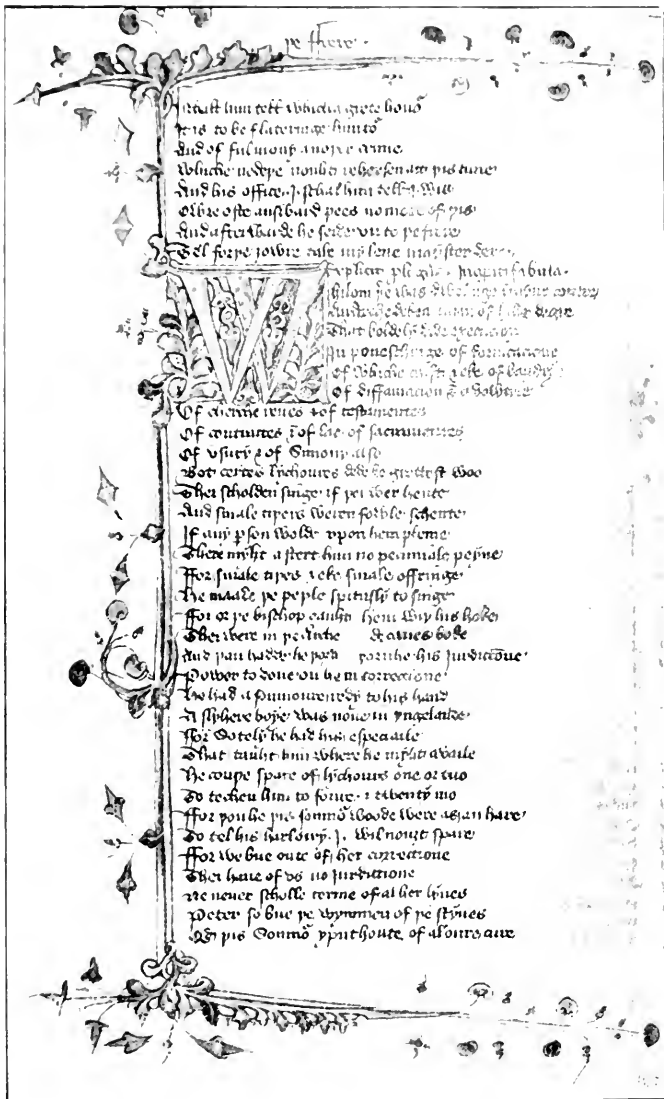 þe frere
I schall him tell whiche a grete honor
It is to be a flateringe limitor
And of ful mony anoþer crime
Whiche nedeþe nouht rehersen att þis time
And his office I schal him telle I wis
Owre oste answard pees no more of þis
And afterwarde he seide vn to þe frere
Tel forþe yowre tale my leue mayster dere
Explicit prologus Incipit fabula
Whilom þer was dwellinge in my contre
An erchedeken a man of hihe degre
That boldely dede execucion
In poneschinge of fornicacione
Of wiche craft & eke of baudry
Of diffamacion & avowtrie
Of cherche reues & of testamentes
Of contractes & of lac of sacramentes
Of vsury & of Simony also
Bot certes lychoures dede he grettest woo
Thei scholden singe if þei wer hente
And smale tiþers weren foule schente
If any person wolde vpon hem pleine
There myht astert him no pecuniale peyne
For smale tiþes & eke smale offringe
He maade þe peple spitusly to singe
For or þe bischop cauht hem wiþ his hoke
Thei were in þe Arche deknes boke
And þan hadde he þorh his iurdiccione
Power to done on hem correccione
He had a Sumoner redy to his hand
A slyhere boye was none in yngelande
For Sotely he had his especiale
That tauht him where he myht availe
He couþe spare of lychours one or tuo
To techen him to foure & twenty mo
For þouhe þis somnor woode were as an hare
To tel his harlotry I wil nouht spare
For we bue oute of her correccione
Thei haue of vs no iurdiccione
Ne neuer scholle terme of al her lyues
Peter so bue þe wymmen of þe styues
Qd þis Somnor yputhoute of al oure cure